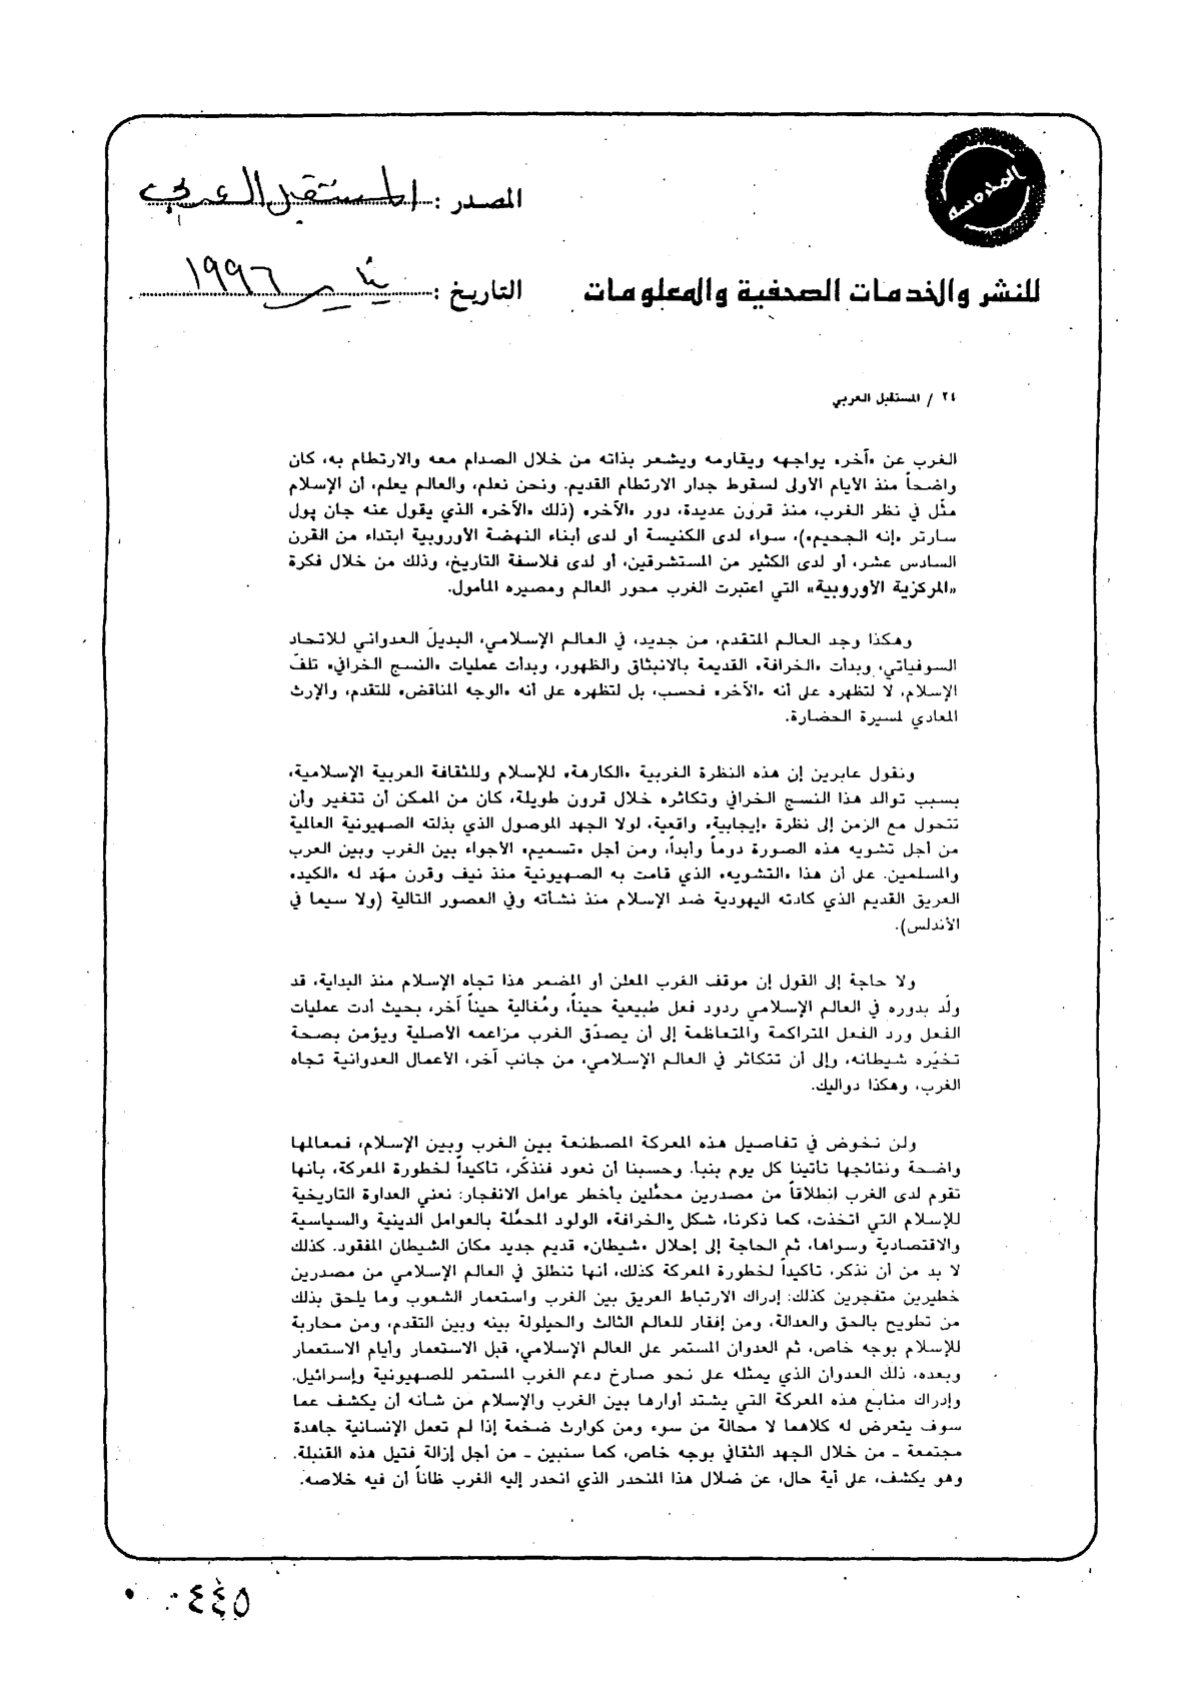 المحروسة
المصدر : المستقبل العربي
للنشر والخدمات الصحفية والمعلومات
التاريخ : يناير ١٩٩٦
٢٤ / المستقبل العربي
الغرب عن «آخر» يواجهه ويقاومه ويشعر بذاته من خلال الصدام معه والارتطام به، كان
واضحاً منذ الأيام الأولى لسقوط جدار الارتطام القديم. ونحن نعلم، والعالم يعلم، أن الإسلام
مثّل في نظر الغرب، منذ قرون عديدة، دور «الآخر» (ذلك «الآخر» الذي يقول عنه جان پول
سارتر «إنه الجحيم»)، سواء لدى الكنيسة أو لدى أبناء النهضة الأوروبية ابتداء من القرن
السادس عشر، أو لدى الكثير من المستشرقين، أو لدى فلاسفة التاريخ، وذلك من خلال فكرة
«المركزية الأوروبية» التي اعتبرت الغرب محور العالم ومصيره المأمول.
وهكذا وجد العالم المتقدم، من جديد، في العالم الإسلامي، البديلَ العدواني للاتحاد
السوفياتي، وبدأت «الخرافة» القديمة بالانبثاق والظهور، وبدأت عمليات «النسج الخرافي» تلفّ
الإسلام، لا لتظهره على أنه «الآخر» فحسب، بل لتظهره على أنه «الوجه المناقض» للتقدم، والإرث
المعادي لمسيرة الحضارة.
ونقول عابرين إن هذه النظرة الغربية «الكارهة» للإسلام وللثقافة العربية الإسلامية،
بسبب توالد هذا النسج الخرافي وتكاثره خلال قرون طويلة، كان من الممكن أن تتغير وأن
تتحول مع الزمن إلى نظرة «إيجابية» واقعية، لولا الجهد الموصول الذي بذلته الصهيونية العالمية
من أجل تشويه هذه الصورة دوماً وأبداً، ومن أجل «تسميم» الأجواء بين الغرب وبين العرب
والمسلمين. على أن هذا «التشويه» الذي قامت به الصهيونية منذ نيف وقرن مهّد له «الكيد»
العريق القديم الذي كادته اليهودية ضد الإسلام منذ نشأته وفي العصور التالية (ولا سيما في
الأندلس).
ولا حاجة إلى القول إن موقف الغرب المعلن أو المضمر هذا تجاه الإسلام منذ البداية، قد
ولّد بدوره في العالم الإسلامي ردود فعل طبيعية حيناً، ومُغالية حيناً آخر، بحيث أدت عمليات
الفعل ورد الفعل المتراكمة والمتعاظمة إلى أن يصدّق الغرب مزاعمه الأصلية ويؤمن بصحة
تخيّره شيطانه، وإلى أن تتكاثر في العالم الإسلامي، من جانب آخر، الأعمال العدوانية تجاه
الغرب، وهكذا دواليك.
ولن نخوض في تفاصيل هذه المعركة المصطنعة بين الغرب وبين الإسلام، فمعالمها
واضحة ونتائجها تأتينا كل يوم بنبأ. وحسبنا أن نعود فنذكّر، تأكيداً لخطورة المعركة، بأنها
تقوم لدى الغرب إنطلاقاً من مصدرين محمّلين بأخطر عوامل الانفجار: نعني العداوة التاريخية
للإسلام التي اتخذت، كما ذكرنا، شكل «الخرافة» الولود المحمّلة بالعوامل الدينية والسياسية
والاقتصادية وسواها، ثم الحاجة إلى إحلال «شيطان» قديم جديد مكان الشيطان المفقود. كذلك
لا بد من أن نذكر، تأكيداً لخطورة المعركة كذلك، أنها تنطلق في العالم الإسلامي من مصدرين
خطيرين متفجرين كذلك: إدراك الارتباط العريق بين الغرب واستعمار الشعوب وما يلحق بذلك
من تطويح بالحق والعدالة، ومن إفقار للعالم الثالث والحيلولة بينه وبين التقدم، ومن محاربة
للإسلام بوجه خاص، ثم العدوان المستمر على العالم الإسلامي، قبل الاستعمار وأيام الاستعمار
وبعده، ذلك العدوان الذي يمثله على نحو صارخ دعم الغرب المستمر للصهيونية وإسرائيل.
وإدراك منابع هذه المعركة التي يشتد أوارها بين الغرب والإسلام من شأنه أن يكشف عما
سوف يتعرض له كلاهما لا محالة من سوء ومن كوارث ضخمة إذا لم تعمل الإنسانية جاهدة
مجتمعة ـ من خلال الجهد الثقافي بوجه خاص، كما سنبين ـ من أجل إزالة فتيل هذه القنبلة.
وهو يكشف، على أية حال، عن ضلال هذا المنحدر الذي انحدر إليه الغرب ظاناً أن فيه خلاصه.
٠٠٤٤٥